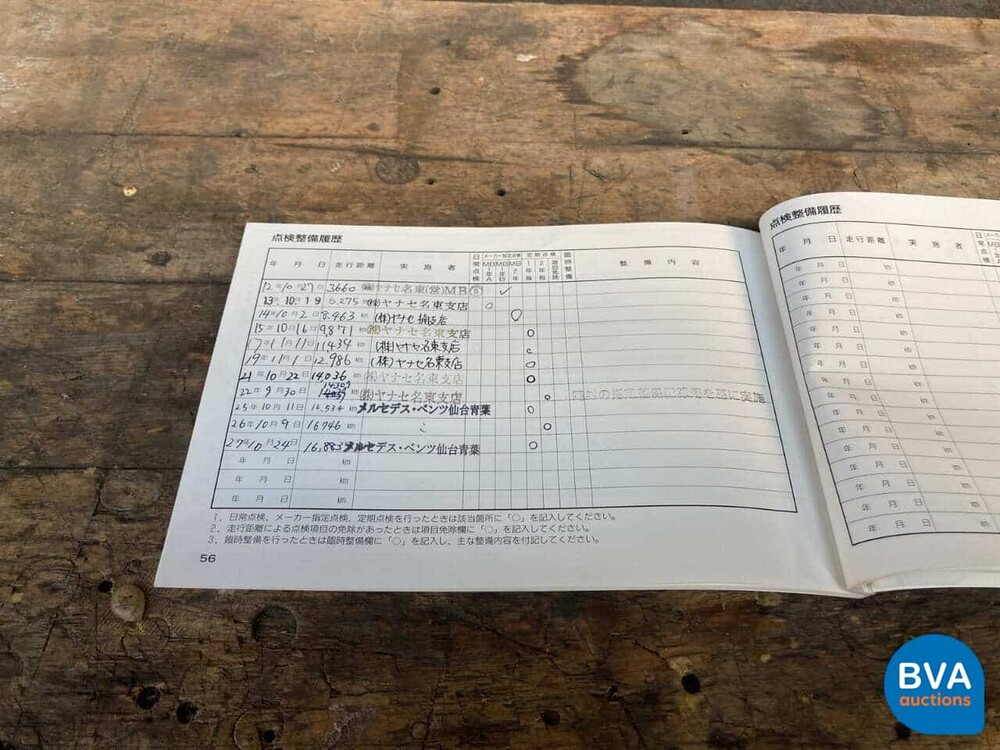 点検整備履歴
年 月 日 走行距離 実施者 日常点検 メーカー指定点検 MB1年A MB1年B MB2年 定期点検 1年毎 2年毎 項目免除 臨時整備 整備内容
12年10月27日 3660 km ㈱ヤナセ名東(営)MB
13年10月19 6.275 km ㈱ヤナセ名東支店 ○
14年10月2日 8.463 km (株)ヤナセ 支店 ○
15年10月16日 9,871 km ㈱ヤナセ名東支店 ○
17年11月11日 11434 km (株)ヤナセ名東支店 ○
19年11月1日 12.986 km (株)ヤナセ名東支店 ○
21年10月22日 14,036 km ㈱ヤナセ名東支店 ○
22年9月30日 14309 km ㈱ヤナセ名東支店 ○
25年10月11日 16,534 km メルセデス・ベンツ仙台青葉 ○
26年10月9日 16746 km 〃 ○
27年10月24日 16,883 メルセデス・ベンツ仙台青葉 ○
年 月 日 km
年 月 日 km
年 月 日 km
1、日常点検、メーカー指定点検、定期点検を行ったときは該当箇所に「○」を記入してください。
2、走行距離による点検項目の免除があったときは項目免除欄に「○」を記入してください。
3、臨時整備を行ったときは臨時整備欄に「○」を記入し、主な整備内容を付記してください。
56
点検整備履歴
年 月 日 走行距離 実施者
年 月 日 km
年 月 日 km
年 月 日 km
年 月 日 km
年 月 日 km
年 月 日 km
年 月 日 km
年 月 日 km
年 月 日 km
年 月 日 km
年 月 日 km
年 月 日 km
年 月 日 km
年 月 日 km
BVA
auctions